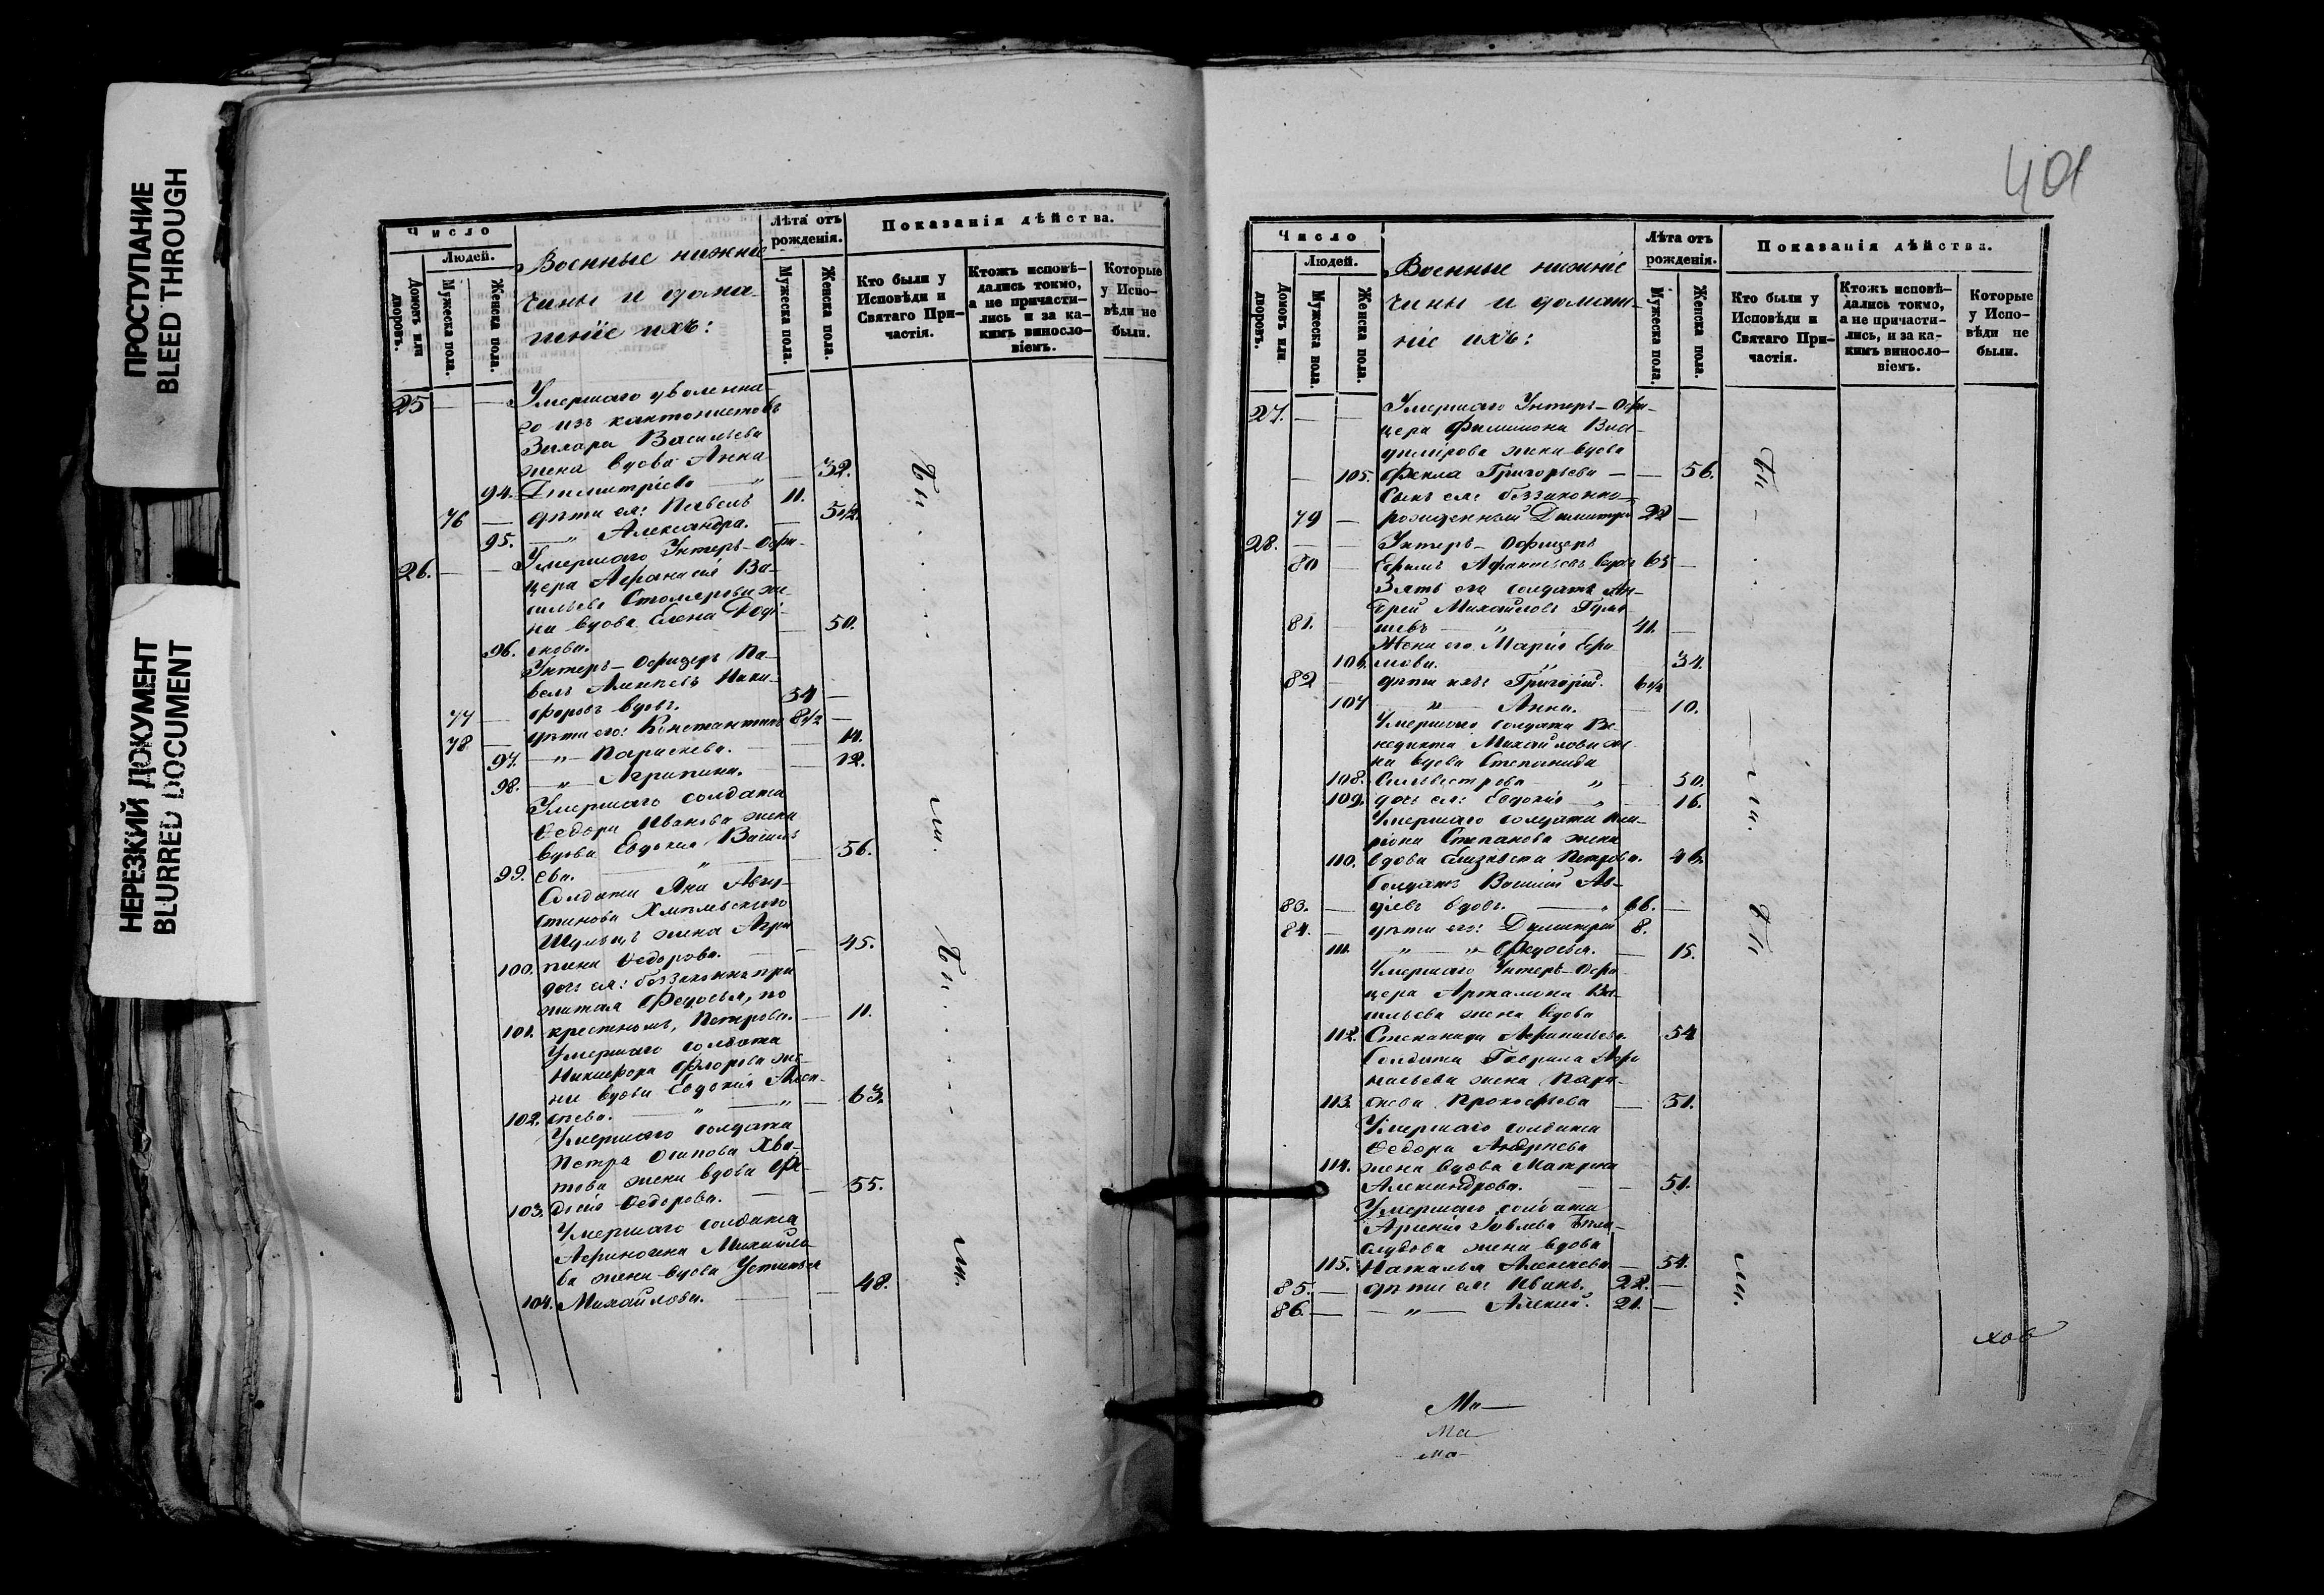 ПРОСТУПАНИЕ
BLEED THROUGH
НЕРЕЗКИЙ ДОКУМЕНТ
BLURRED DOCUMENT
Число
Людей.
Домовъ или дворовъ.
Мужеска пола.
Женска пола.
Военные нижніе
чины и дома-
шніе ихъ:
Лѣта отъ
рожденія.
Мужеска пола.
Женска пола.
Показанія дѣйства.
Кто были у
Исповѣди и
Святаго При-
частія.
Ктожъ исповѣ-
дались токмо,
а не причасти-
лись и за ка-
кимъ винносло-
віемъ.
Которые
у Испо-
вѣди не
были.
25 — — Умершаго уволенна-
го изъ кантонистовъ
Васильева
жена вдова Анна
94. Димитріева — 32.
76 — дѣти ея: Павелъ 11.
95. — " Александра. — 5 1/2.
26. — — Умершаго Унтеръ-Офи-
цера Аѳанасія Ва-
сильева Столярова же-
на вдова Елена Роді-
96. онова. — 50.
Унтеръ-Офицеръ Па-
велъ Алексѣевъ Ники-
77 — форовъ вдовъ. 54 —
78 — дѣти его: Константинъ 8 1/2 —
97. — " — Параскева. — 14.
98. — " — Агрипина. — 12.
Умершаго солдата
Ѳедора Иванова жена
вдова Евдокія Василь-
99. ева. — " — 56.
Солдата Яна Авгу-
стинова
жена Агри-
100. пина Ѳедорова. — 45.
дочь ея: беззаконно при-
житая Федосья, по
101. крестномъ, Петрова. — 11.
Умершаго солдата
Никифора Флорова же-
на вдова Евдокія Алек-
102. сѣева. — " — " — 63.
Умершаго солдата
Петра Осипова Хва-
това жена вдова Фе-
103. досія Ѳедорова. — 55.
Умершаго солдата
Аѳиногена Михайло-
ва жена вдова Устинья
104. Михайлова. — 48.
Бы
ли.
Бы
ли.
401
Число
Людей.
Домовъ или дворовъ.
Мужеска пола.
Женска пола.
Военные нижніе
чины и домаш-
ніе ихъ:
Лѣта отъ
рожденія.
Мужеска пола.
Женска пола.
Показанія дѣйства.
Кто были у
Исповѣди и
Святаго При-
частія.
Ктожъ исповѣ-
дались токмо,
а не причасти-
лись, и за ка-
кимъ винносло-
віемъ.
Которые
у Испо-
вѣди не
были.
27. — — Умершаго Унтеръ-Офи-
цера Филимона Вла-
димірова жена вдова
— 105. Фекла Григорьева — — 56.
Сынъ ея: беззаконно-
79 — рожденный Димитрій 22 —
28. — — Унтеръ-Офицеръ
80 — Ефимъ вдовъ 65 —
Зять его солдатъ Ан-
дрей Михайловъ
81. — — " — 41. —
Жена его Марія Ефи-
106. мова. " 34.
82 — дѣти ихъ: Григорій. 6 1/2
107 — " — Анна. — 10.
Умершаго солдата Ве-
недикта Михайлова же-
на вдова Степанида
108. Сильвестрова — " — 50.
109. дочь ея: Евдокія — " — 16.
Умершаго солдата
Степанова жена
110. вдова Елизавета Петрова. 46.
Солдатъ Василій Ав-
83. — дѣевъ вдовъ. — 66. —
84. — дѣти его: Димитрій 8.
111. " — " Федосья. — 15.
Умершаго Унтеръ-Офи-
цера Артамона Ва-
сильева жена вдова
112. Степанида 54
Солдата Гаврила
жена Пара-
113. скева Прокофьева — 51.
Умершаго солдата
Ѳедора Андрѣева
114. жена вдова Матрона
Александрова. — — 51.
Умершаго солдата
Арсенія
жена вдова
115. Наталья Алексѣева — 54.
85. — дѣти ея: Иванъ. 22. —
86. — — " — Алексѣй. 21. —
Бы
ли.
Бы
ли.
хов
Ма—
Ма
ма